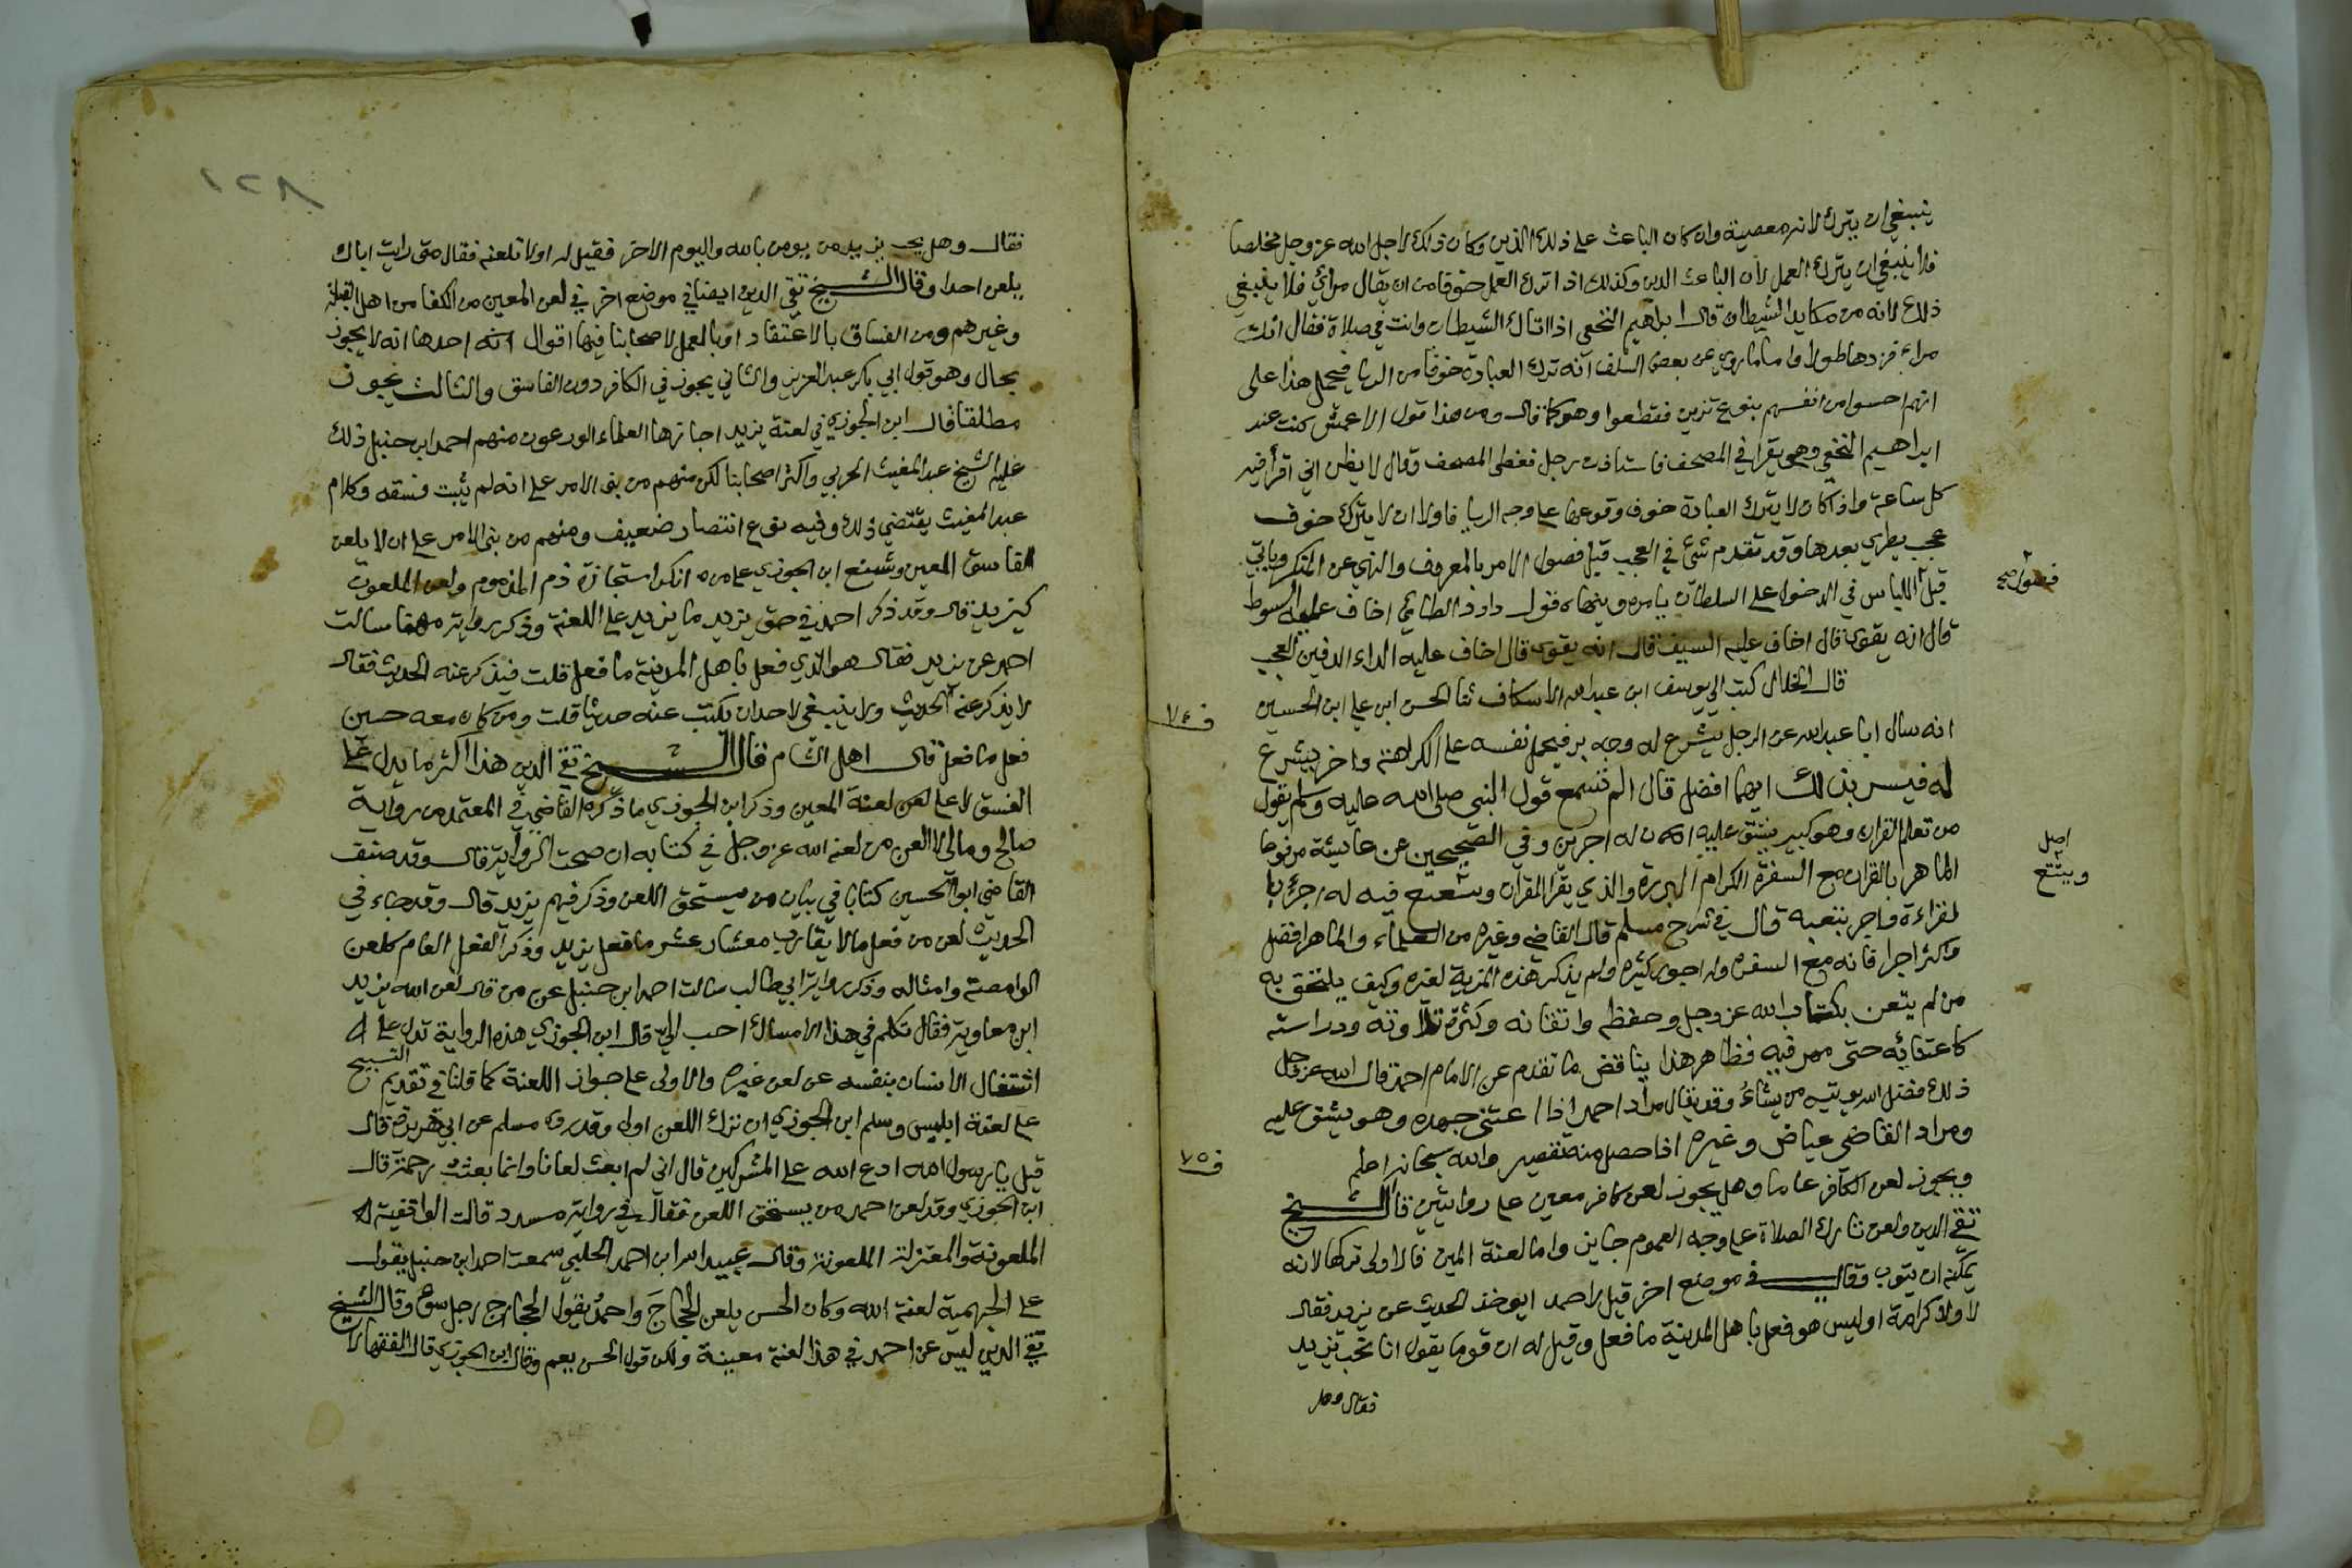 ينبغي ان يترك لانه معصية وان كان الباعث على ذلك الدين وكان ذلك لاجل الله عز وجل مخلصا
فلا ينبغي ان يترك العمل لان الباعث الدين وكذلك اذا ترك العمل خوفا من ان يقال مرائي فلا ينبغي
ذلك لانه من مكايد الشيطان قال ابراهيم النخعي اذا اتاك الشيطان وانت في صلاة فقال انك
مراء فزدها طولا واما ما روي عن بعض السلف انه ترك العبادة خوفا من الريا فيحمل هذا على
انهم احسوا من انفسهم بنوع تزين فقطعوا وهو كما قال ومن هذا قول الاعمش كنت عند
ابراهيم النخعي وهو يقرا في المصحف فاستاذن رجل فغطى المصحف وقال لا يظن اني اقرأ فيه
كل ساعة واذا كان لا يترك العبادة خوف وقوعها على وجه الريا فاولا ان لا يترك خوف
عجب يطري بعدها وقد تقدم شئ في العجب قبل فصول الامر بالمعروف والنهى عن المنكر وياتي
قبل اللباس في الدخول على السلطان يامره وينهاه قول داود الطائي اخاف عليه السوط
فصول صح
قال انه يقوى قال اخاف عليه السيف قال انه يقوى قال اخاف عليه الداء الدفين العجب
قال الخلال كتب الي يوسف ابن عبدالله الاسكاف ثنا الحسن ابن علي ابن الحسين
ف ٧٤
انه سال ابا عبدالله عن الرجل يشرع له وجه بر فيحمل نفسه على الكراهة واخر يشرع
له فيسر بذلك ايهما افضل قال الم تسمع قول النبي صلى الله عليه وسلم يقول
من تعلم القران وهو كبير يشق عليه ان له اجرين وفي الصحيحين عن عايشة مرفوعا
الماهر بالقران مع السفرة الكرام البررة والذي يقرا القرآن ويتتعتع فيه له اجر با
اصل
ويتتع
لقراءة واجر بتعبه قال في شرح مسلم قال القاضي وغيره من العلماء والماهر افضل
واكثر اجرا فانه مع السفرة وله اجور كثيرة ولم يذكر هذه المزية لغيره وكيف يلتحق به
من لم يتعن بكتاب الله عز وجل وحفظه واتقانه وكثرة تلاوته ودراسته
كاعتنائه حتى مهر فيه فظاهر هذا يناقض ما تقدم عن الامام احمد قال الله عز وجل
ذلك فضل الله يوتيه من يشاءُ وقد يقال مراد احمد اذا اعتنى جهده وهو يشق عليه
ومراد القاضي عياض وغيره اذا حصل منه تقصير والله سبحانه اعلم
ف ٧٥
ويجوز لعن الكافر عاما وهل يجوز لعن كافر معين على روايتين قال الشيخ
تقي الدين ولعن تارك الصلاة على وجه العموم جايز واما لعنة المين فالاولى تركها لانه
يمكن ان يتوب وقال في موضع اخر قيل لاحمد ايوخذ الحديث عن يزيد فقال
لا ولا كرامة اوليس هو فعل باهل المدينة ما فعل وقيل له ان قوما يقول انا نحب يزيد
فقال وهل
١٢٨
فقال وهل يحب يزيد من يومن بالله واليوم الاخر فقيل له اولا تلعنه فقال متى رايت اباك
يلعن احدا وقال الشيخ تقي الدين ايضا في موضع اخر في لعن المعين من الكفار من اهل القبلة
وغيرهم ومن الفساق بالاعتقاد او بالعمل لاصحابنا فيها اقوال احدها انه لا يجوز
بحال وهو قول ابي بكر عبد العزيز والثاني يجوز في الكافر دون الفاسق والثالث يجوز
مطلقا قال ابن الجوزي في لعنة يزيد اجازها العلماء الورعون منهم احمد ابن حنبل ذلك
عليه الشيخ عبد المغيث الحربي واكثر اصحابنا لكن منهم من بنى الامر على انه لم يثبت فسقه وكلام
عبد المغيث يقتضي ذلك وفيه نوع انتصار ضعيف ومنهم من بنى الامر على ان لا يلعن
الفاسق المعين وشنع ابن الجوزي على من انكر استجازة ذم المذموم ولعن الملعون
كيزيد قال وقد ذكر احمد في حق يزيد ما يزيد على اللعنة وذكر رواية مهنا سالت
احمد عن يزيد فقال هو الذي فعل باهل المدينة ما فعل قلت فيذكر عنه الحديث فقال
لا يذكر عنه الحديث ولا ينبغي لاحد ان يكتب عنه حديثا قلت ومن كان معه حين
فعل ما فعل قال اهل الشام قال الشيخ تقي الدين هذا اكثر ما يدل على
الفسق لا على لعن لعنة المعين وذكر ابن الجوزي ما ذكره القاضي في المعتمد من رواية
صالح ومالي لا العن من لعنه الله عز وجل في كتابه ان صحت الرواية قال وقد صنف
القاضي ابو الحسين كتابا في بيان من يستحق اللعن وذكر فيهم يزيد قال وقد جاء في
الحديث لعن من فعل ما لا يقارب معشار عشر ما فعل يزيد وذكر الفعل العام كلعن
الوامصة وامثاله وذكر رواية ابي طالب سالت احمد ابن حنبل عن من قال لعن الله يزيد
ابن معاوية فقال تكلم في هذا الامساك احب الي قال ابن الجوزي هذه الرواية تدل على
اشتغال الانسان بنفسه عن لعن غيره والاولى على جواز اللعنة كما قلنا في تقديم التسبيح
على لعنة ابليس وسلم ابن الجوزي ان ترك اللعن اولى وقد روى مسلم عن ابي هريرة قال
قيل يا رسول الله ادع الله على المشركين قال اني لم ابعث لعانا وانما بعثت رحمة قال
ابن الجوزي وقد لعن احمد من يستحق اللعن فقال في رواية مسدد قالت الواقفية
الملعونة والمعتزلة الملعونة وقال عبيد الله ابن احمد الحلبي سمعت احمد ابن حنبل يقول
على الجهمية لعنة الله وكان الحسن يلعن الحجاج واحمد يقول الحجاج رجل سوء وقال الشيخ
تقي الدين ليس عن احمد في هذا لعنة معينة ولكن قول الحسن يعم وقال ابن الجوزي قال الفقهاء لا